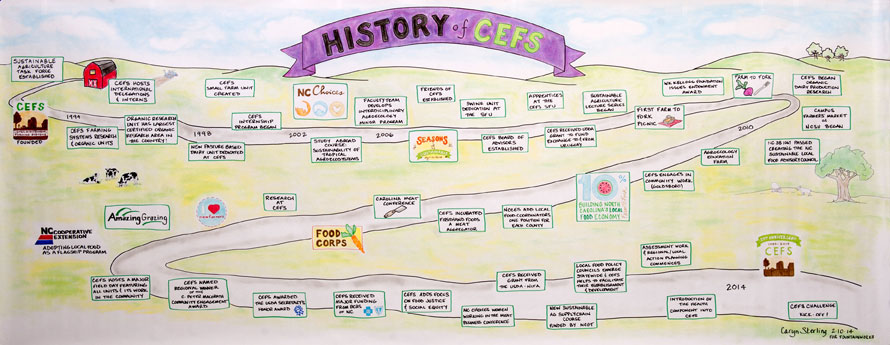 HISTORY of CEFS
SUSTAINABLE
AGRICULTURE
TASK FORCE
ESTABLISHED
CEFS
FOUNDED
1994
CEFS FARMING
SYSTEMS RESEARCH
& ORGANIC UNITS
CEFS HOSTS
INTERNATIONAL
DELEGATIONS
& INTERNS
ORGANIC RESEARCH
UNIT HAS LARGEST
CERTIFIED ORGANIC
RESEARCH AREA IN
THE COUNTRY!
1998
NEW PASTURE BASED
DAIRY UNIT DEDICATED
AT CEFS
CEFS
SMALL FARM UNIT
CREATED
CEFS
INTERNSHIP
PROGRAM BEGAN
NC Choices
2002
STUDY ABROAD
COURSE:
SUSTAINABILITY OF
TROPICAL
AGROECOSYSTEMS
FACULTY TEAM
DEVELOPS
INTERDISCIPLINARY
AGROECOLOGY
MINOR PROGRAM
2006
SEASONS
FRIENDS OF
CEFS
ESTABLISHED
SWINE UNIT
DEDICATION AT
THE SFU
CEFS BOARD OF
ADVISORS
ESTABLISHED
APPRENTICES
AT THE
CEFS SFU
CEFS RECEIVED USDA
GRANT TO FUND
EXCHANGE TO & FROM
URUGUAY
SUSTAINABLE
AGRICULTURE
LECTURE SERIES
BEGAN
FIRST FARM TO
FORK
PICNIC
W.K. KELLOGG FOUNDATION
ISSUES ENDOWMENT
AWARD
FARM TO FORK
CEFS BEGAN
ORGANIC
DAIRY PRODUCTION
RESEARCH
CAMPUS
FARMERS' MARKET
AT
NCSU BEGAN
2010
AGROECOLOGY
EDUCATION
FARM
PASSED
CREATING THE NC
SUSTAINABLE LOCAL
FOOD ADVISORY COUNCIL
CEFS ENGAGES IN
COMMUNITY WORK
(GOLDSBORO)
10%
BUILDING NORTH
CAROLINA'S LOCAL
FOOD ECONOMY
NODES AND LOCAL
FOOD COORDINATORS
ONE POSITION FOR
EACH COUNTY
CEFS INCUBATED
FIRSTHAND FOODS
A MEAT
AGGREGATOR
CAROLINA MEAT
CONFERENCE
RESEARCH
AT
CEFS
FOOD
CORPS
Amazing Grazing
NC COOPERATIVE
EXTENSION
ADOPTING LOCAL FOOD
AS A FLAGSHIP PROGRAM
CEFS HOSTS A MAJOR
FIELD DAY FEATURING
ALL UNITS & ITS WORK
IN THE COMMUNITY
CEFS NAMED
REGIONAL WINNER OF
THE
C. PETER MAGRATH
COMMUNITY ENGAGEMENT
AWARD
CEFS AWARDED
THE USDA SECRETARY'S
HONOR AWARD
CEFS RECEIVED
MAJOR FUNDING
FROM BCBS
OF NC.
CEFS ADDS FOCUS
ON FOOD JUSTICE
& SOCIAL EQUITY
NC CHOICES WOMEN
WORKING IN THE MEAT
BUSINESS CONFERENCE
CEFS RECEIVED
GRANT FROM
THE USDA-NIFA
NEW SUSTAINABLE
AG SUPPLY CHAIN
COURSE
FUNDED BY
LOCAL FOOD POLICY
COUNCILS EMERGE
STATEWIDE & CEFS
HELPS TO FACILITATE
THEIR ESTABLISHMENT
& DEVELOPMENT
ASSESSMENT WORK
& REGIONAL/LOCAL
ACTION PLANNING
COMMENCES
INTRODUCTION OF
THE HEALTH
COMPONENT INTO
CEFS
2014
CEFS
CEFS CHALLENGE
KICK-OFF!
Caryn Sterling 2.10.14
FOR FOUNTAINWORKS